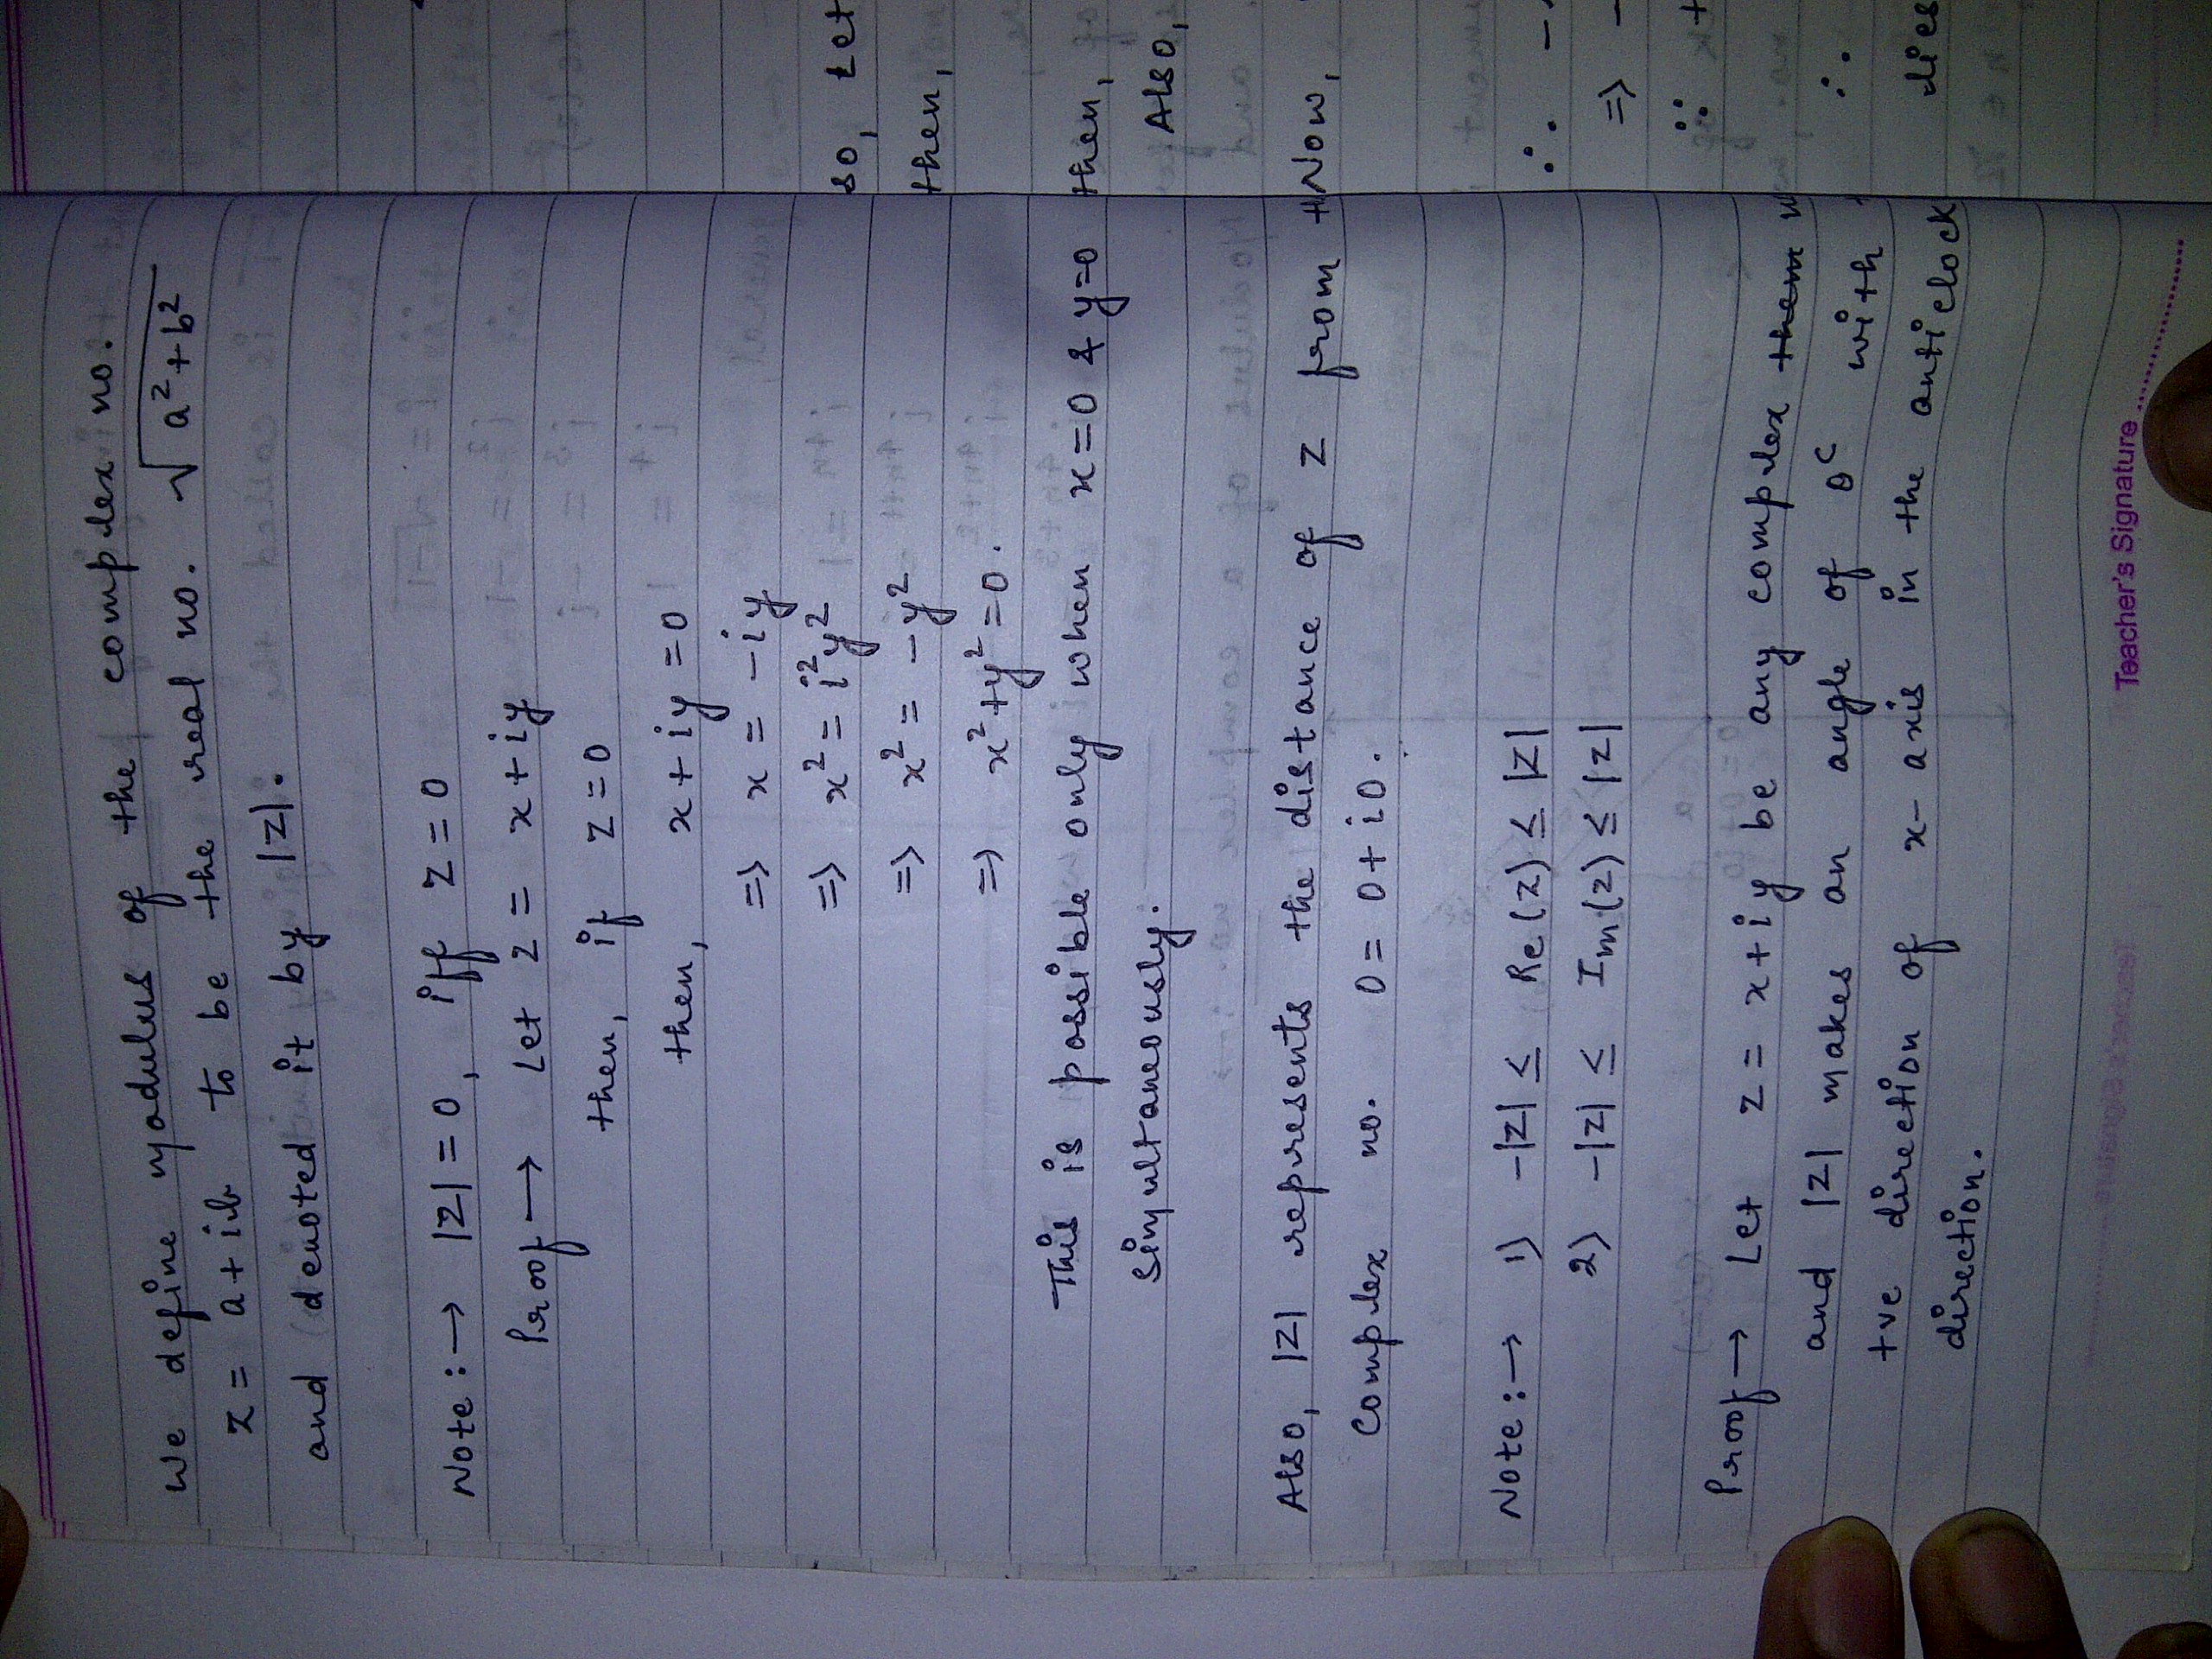 We define modulus of the complex no.
z = a+ib to be the real no. √a²+b²
and denoted it by |z|.
Note :→ |z| = 0, iff z = 0
Proof → Let z = x+iy
then, if z = 0
then, x+iy = 0
=> x = -iy
=> x² = i²y²
=> x² = -y²
=> x²+y² = 0.
This is possible only when x=0 & y=0
simultaneously.
Also, |z| represents the distance of z from
complex no. 0 = 0+i0.
Note :→ 1) -|z| ≤ Re(z) ≤ |z|
2) -|z| ≤ Im(z) ≤ |z|
Proof → Let z = x+iy be any complex them
and |z| makes an angle of θᶜ with
+ve direction of x-axis in the anticlock
direction.
Teacher's Signature
so, Let
then,
then,
Also,
Now,
∴ -
=> -
∵ +
∴
lies